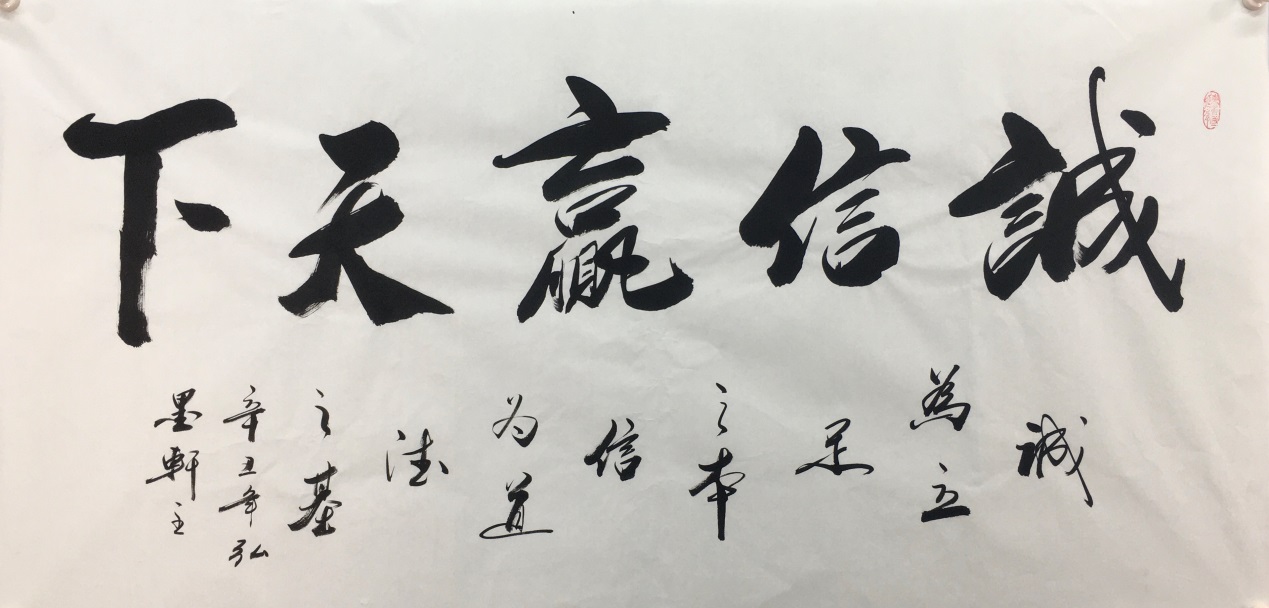 誠信贏天下
诚
為立
足
之本
信
为道
德
之基
辛丑年弘
墨軒主